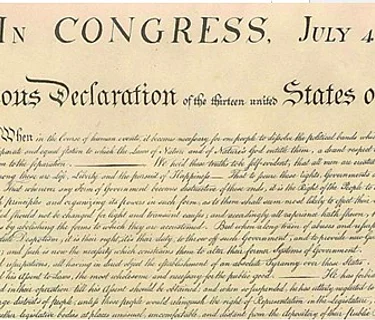 IN CONGRESS, JULY 4
ous Declaration of the thirteen united States o
When in the Course of human events, it becomes necessary for one people to dissolve the political bands which
separate and equal station to which the Laws of Nature and of Nature's God entitle them, a decent respect
them to the separation. ——— We hold these truths to be self-evident, that all men are
among these are Life, Liberty and the pursuit of Happiness.— That to secure these rights, Governments
That whenever any Form of Government becomes destructive of these ends, it is the Right of the People to
principles and organizing its powers in such form, as to them shall seem most likely to effect their
should not be changed for light and transient causes; and accordingly all experience hath shewn,
by abolishing the forms to which they are accustomed. But when a long train of abuses and
Despotism, it is their right, it is their duty, to throw off such Government, and to provide new
; and such is now the necessity which constrains them to alter their former Systems of Government.
usurpations, all having in direct object the establishment of an absolute Tyranny over these States.
his Assent to Laws, the most wholesome and necessary for the public good. ——— He has
in their operation till his Assent should be obtained; and when so suspended, he has utterly neglected to
districts of people, unless those people would relinquish the right of Representation in the Legislature,
legislative bodies at places unusual, uncomfortable, and distant from the depository of their public